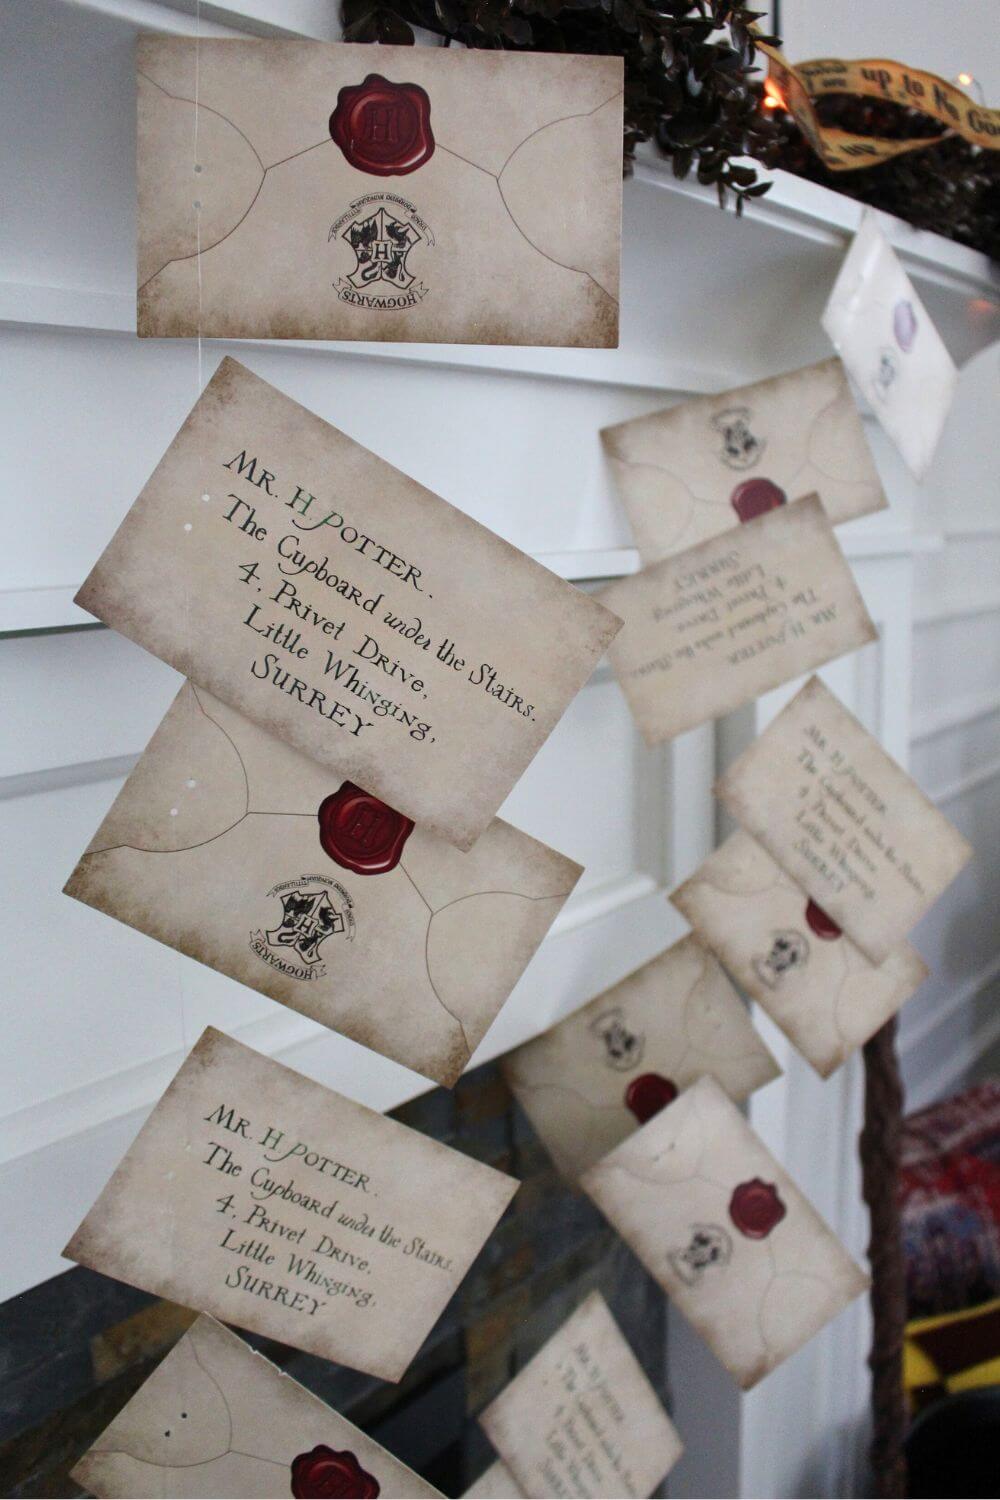 up to No Goo
H
H
DRACO DORMIENS NUNQUAM TITILLANDUS
HOGWARTS
MR. H POTTER.
The Cupboard under the Stairs.
4, Privet Drive,
Little Whinging,
SURREY
MR. H POTTER
The Cupboard under the Stairs.
4, Privet Drive
Little Whinging
SURREY
MR. H POTTER
The Cupboard under the Stairs.
4, Privet Drive
Little Whinging,
SURREY
H
H
HOGWARTS
MR. H POTTER.
The Cupboard under the Stairs.
4, Privet Drive,
Little Whinging,
SURREY
MR. H POTTER
H